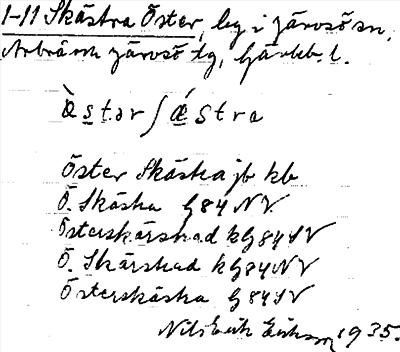 1-11 Skästra Öster, by i Järvsö sn,
Arbrå och Järvsö tg, Gävleb. l.
ὰstər ʃæ̀stra
Öster Skästra jb kb
Ö. Skästra G84 NV.
Österskärstad kG84SV
Ö. Skärstad kG84NV
Österskästra G84SV
Nils Erik Eriksson 1935.